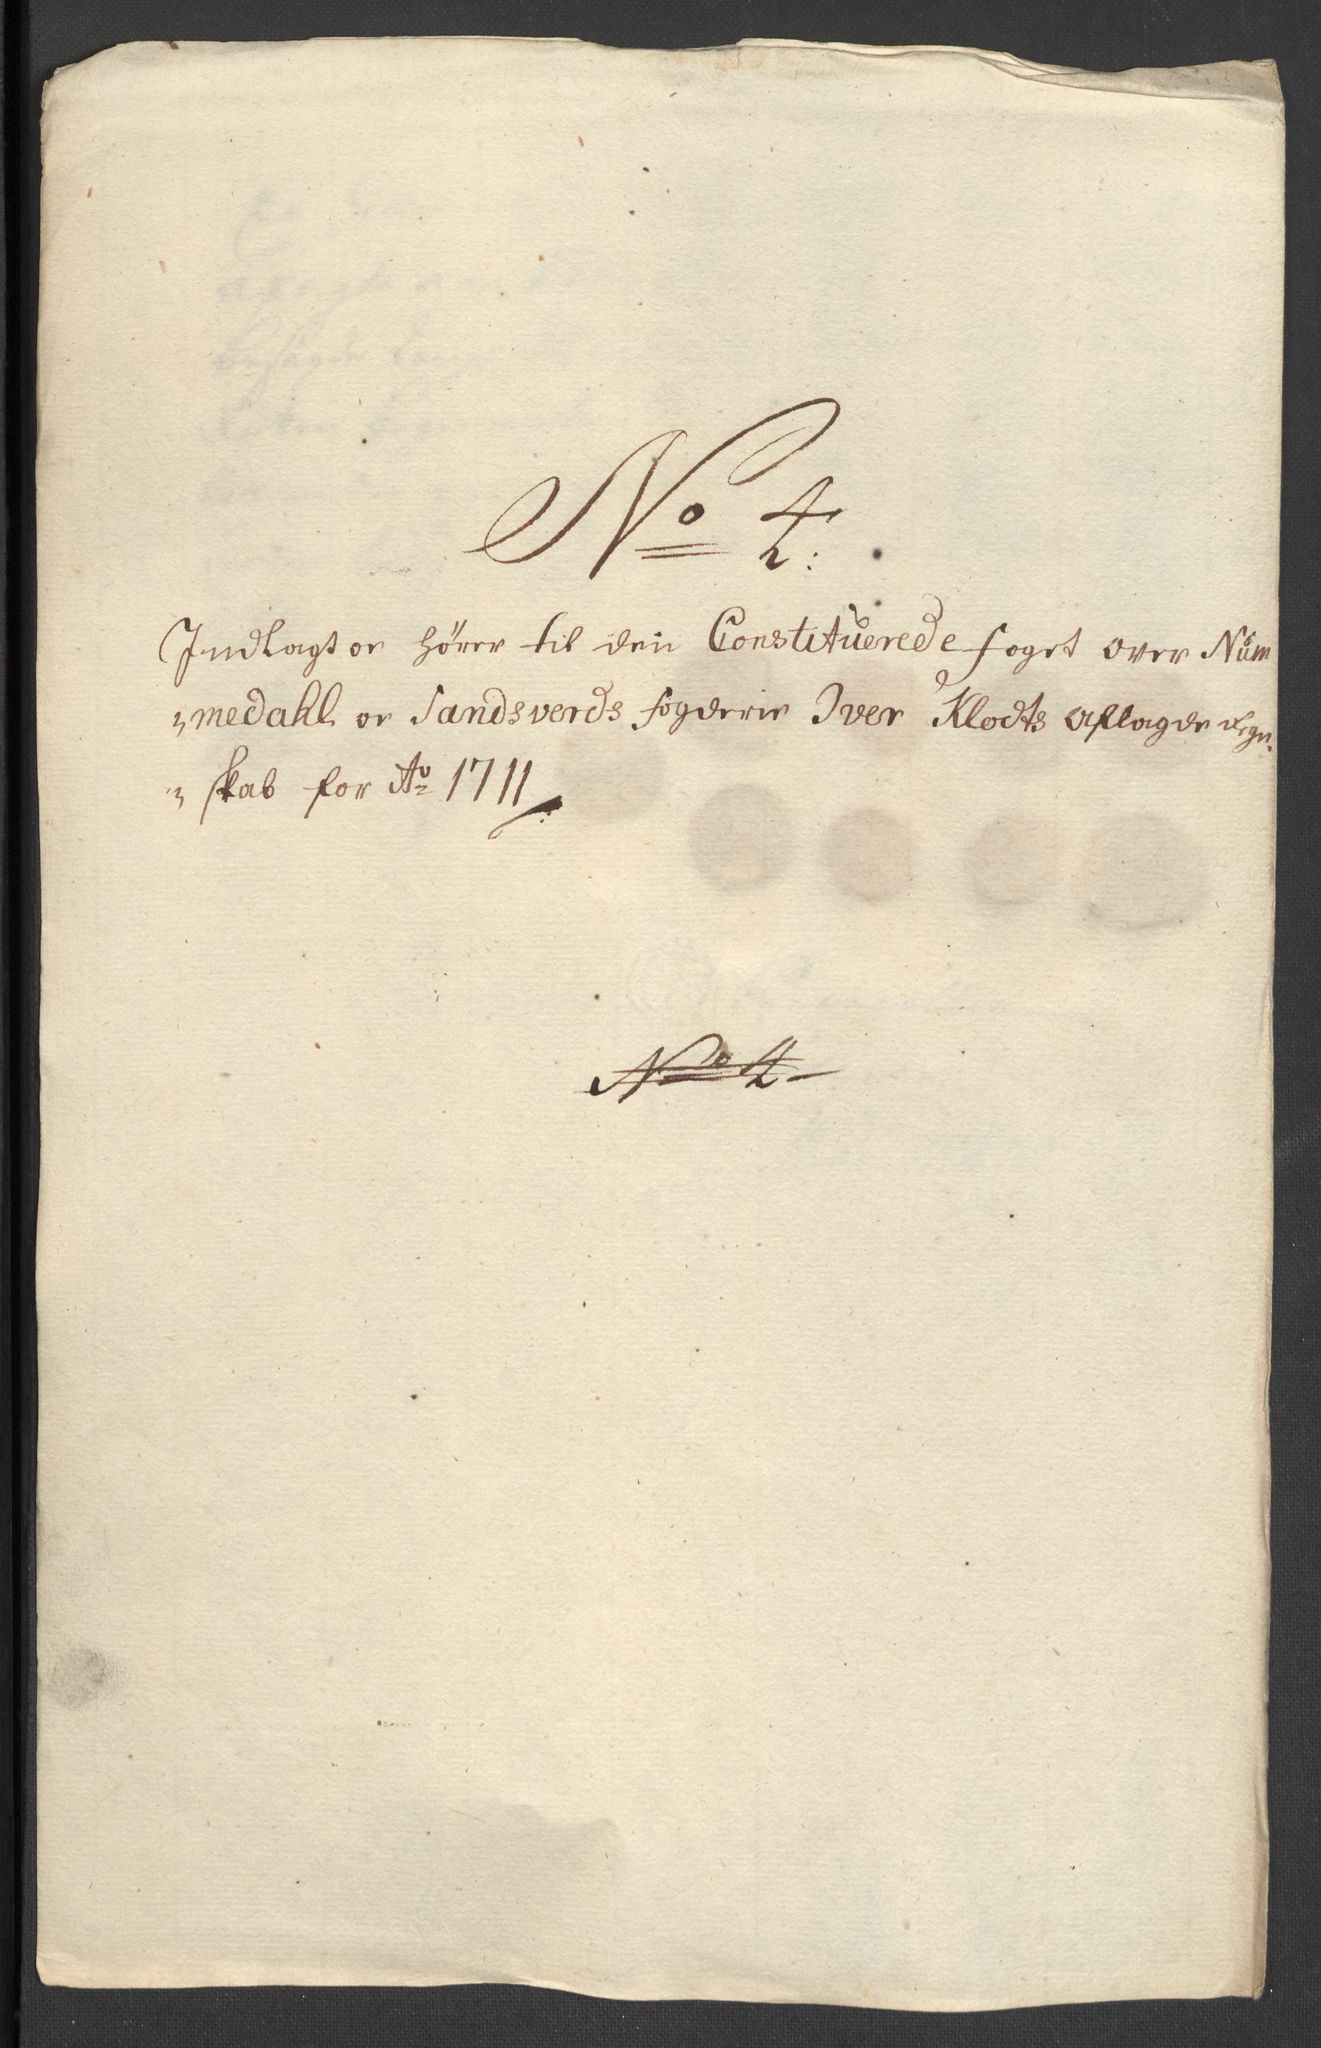 No 4:
Indlagt oc hörer til den Constituerede foget over Num
medahl oc Sandsverds fogderie Iver Klodts aflagde Regn
skab for Ao 1711
No 4